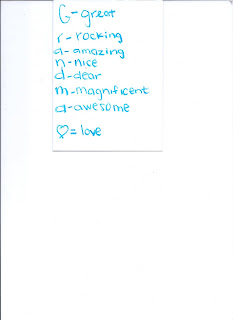 G-great
r-rocking
a-amazing
n-nice
d-dear
m-magnificent
a-awesome
♡=love